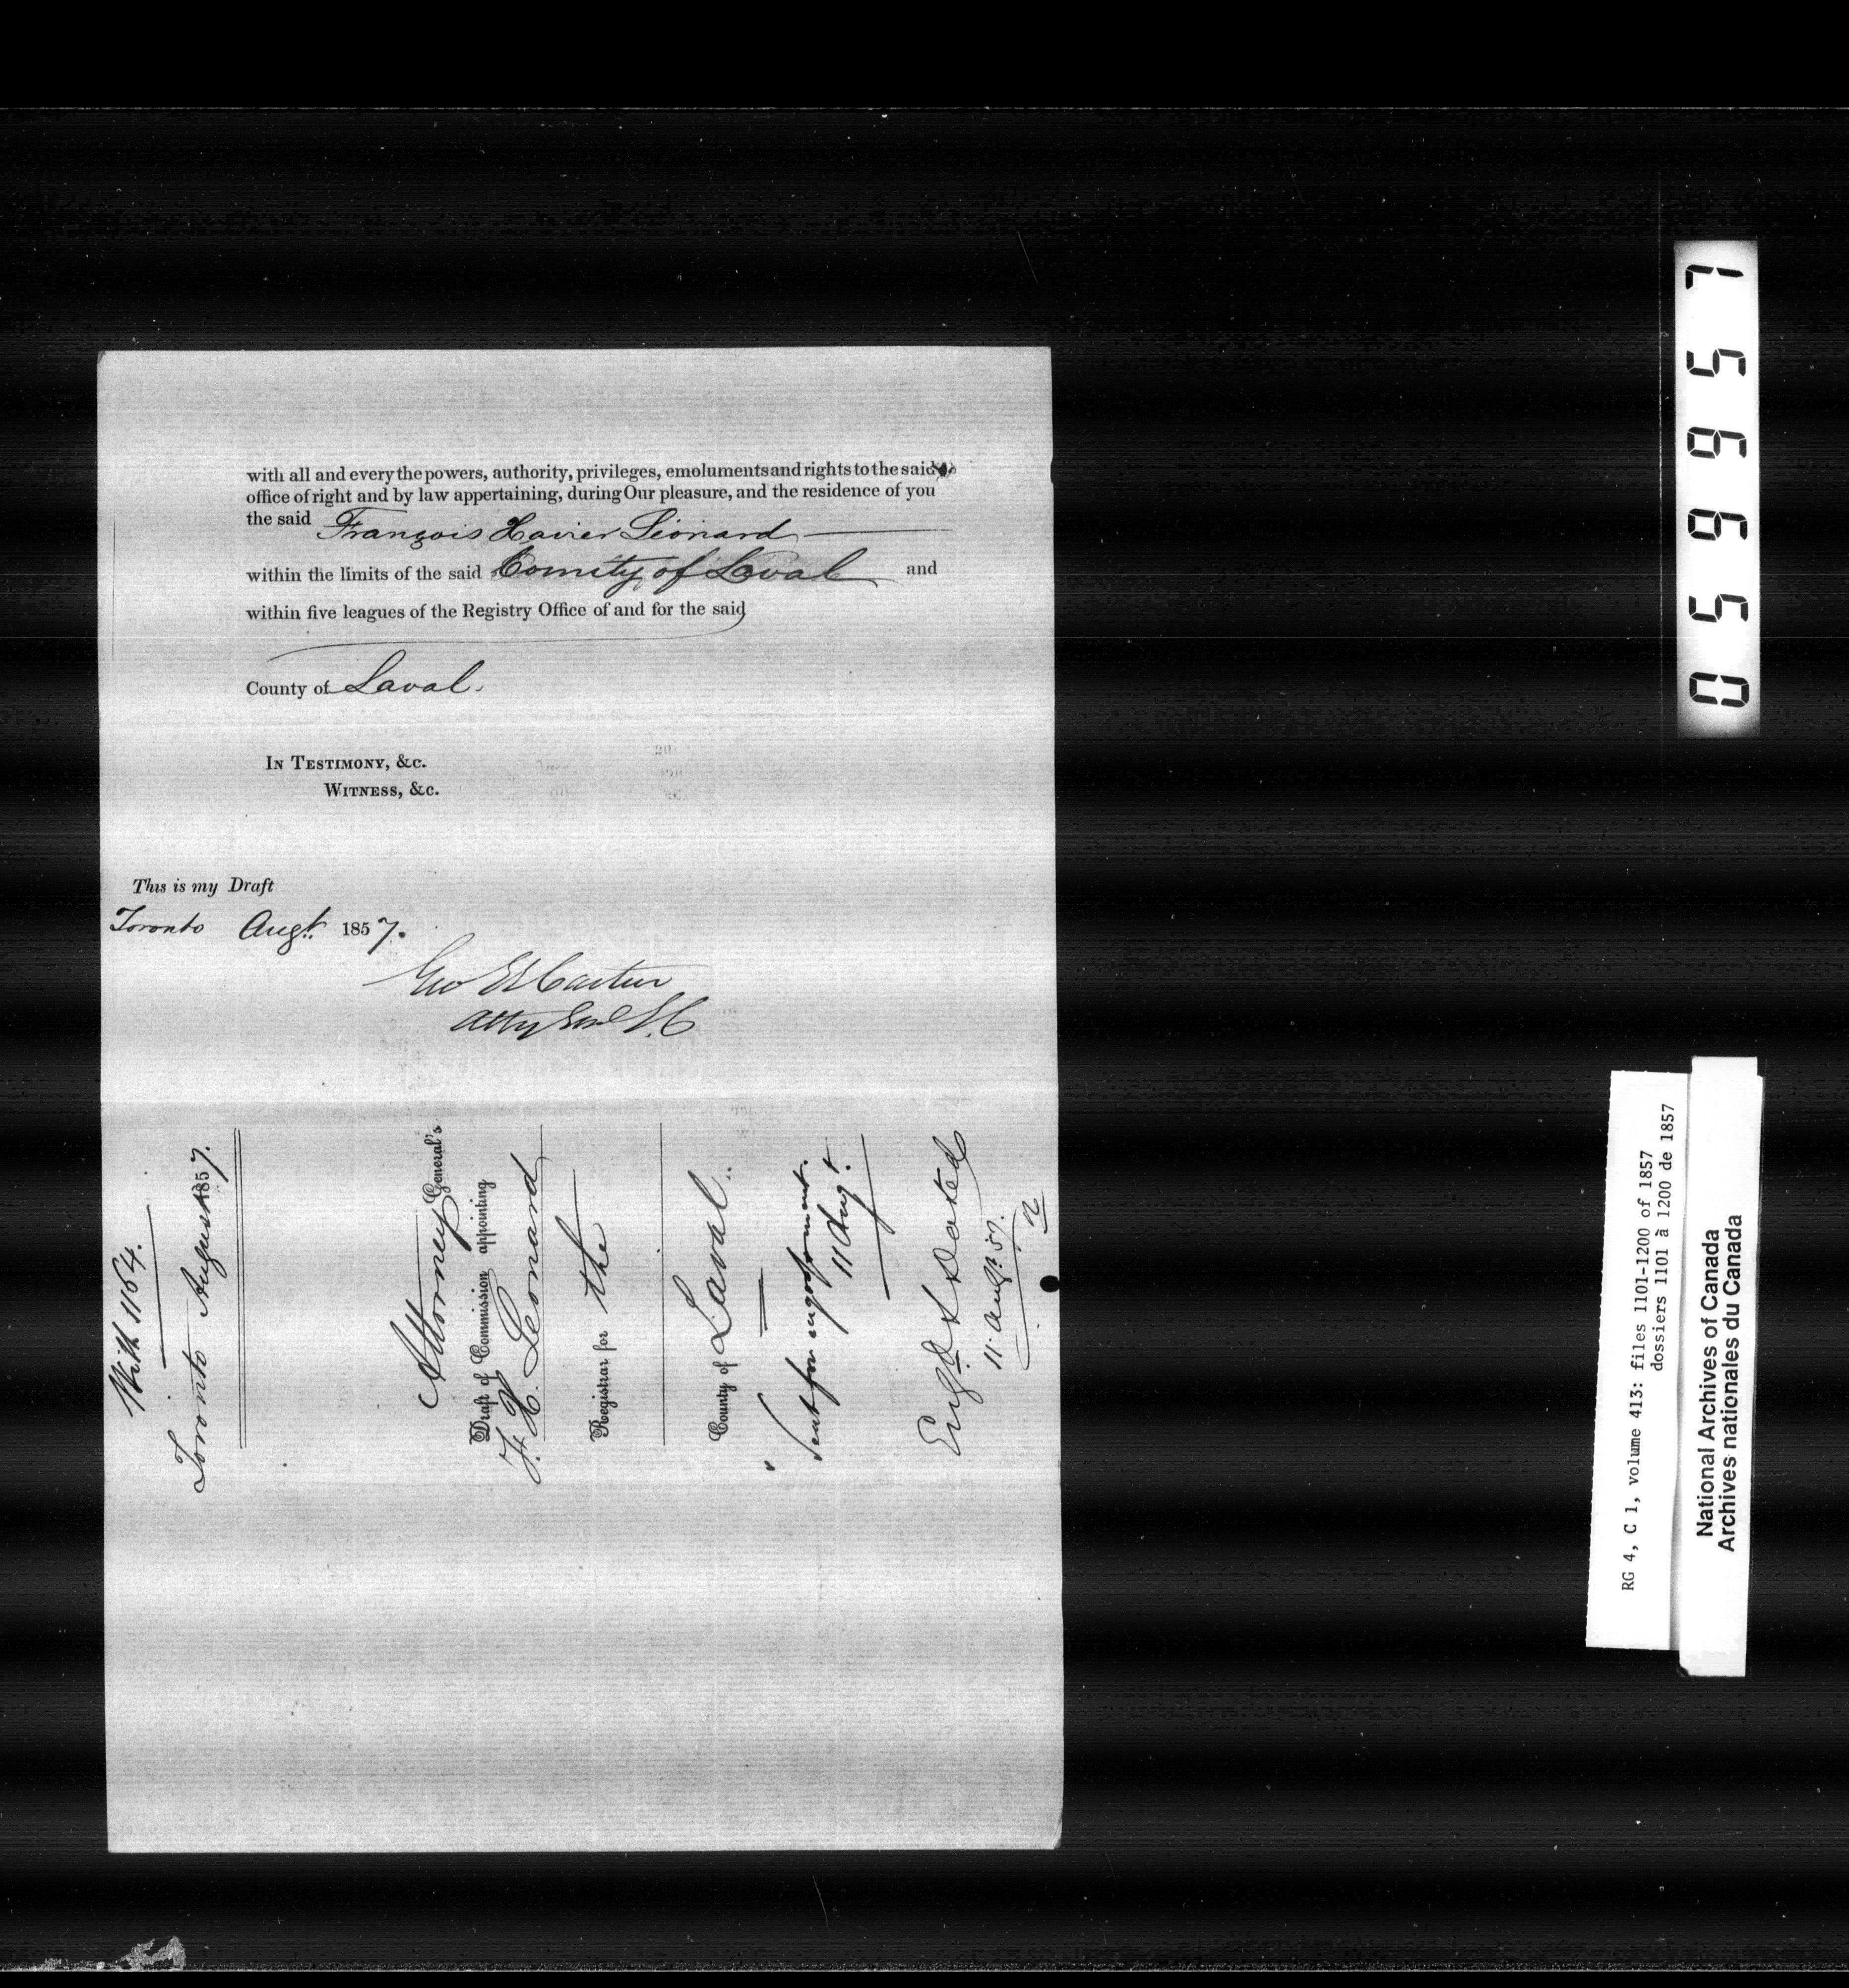 with all and every the powers, authority, privileges, emoluments and rights to the said
office of right and by law appertaining, during Our pleasure, and the residence of you
the said François Xavier Léonard
within the limits of the said County of Laval and
within five leagues of the Registry Office of and for the said
County of Laval.
IN TESTIMONY, &c.
WITNESS, &c.
This is my Draft
Toronto Augt. 1857.
Geo Et Cartier
Atty Genl L.C
With 1164.
Toronto August 1857.
Attorney General's
Draft of Commission appointing
F. X. Leonard
Registrar for the
County of Laval.
Sent for engrossment.
11 Augt.
Engd & Dated
11 Augt 57.
059957
RG 4, C 1, volume 413: files 1101-1200 of 1857
dossiers 1101 à 1200 de 1857
National Archives of Canada
Archives nationales du Canada